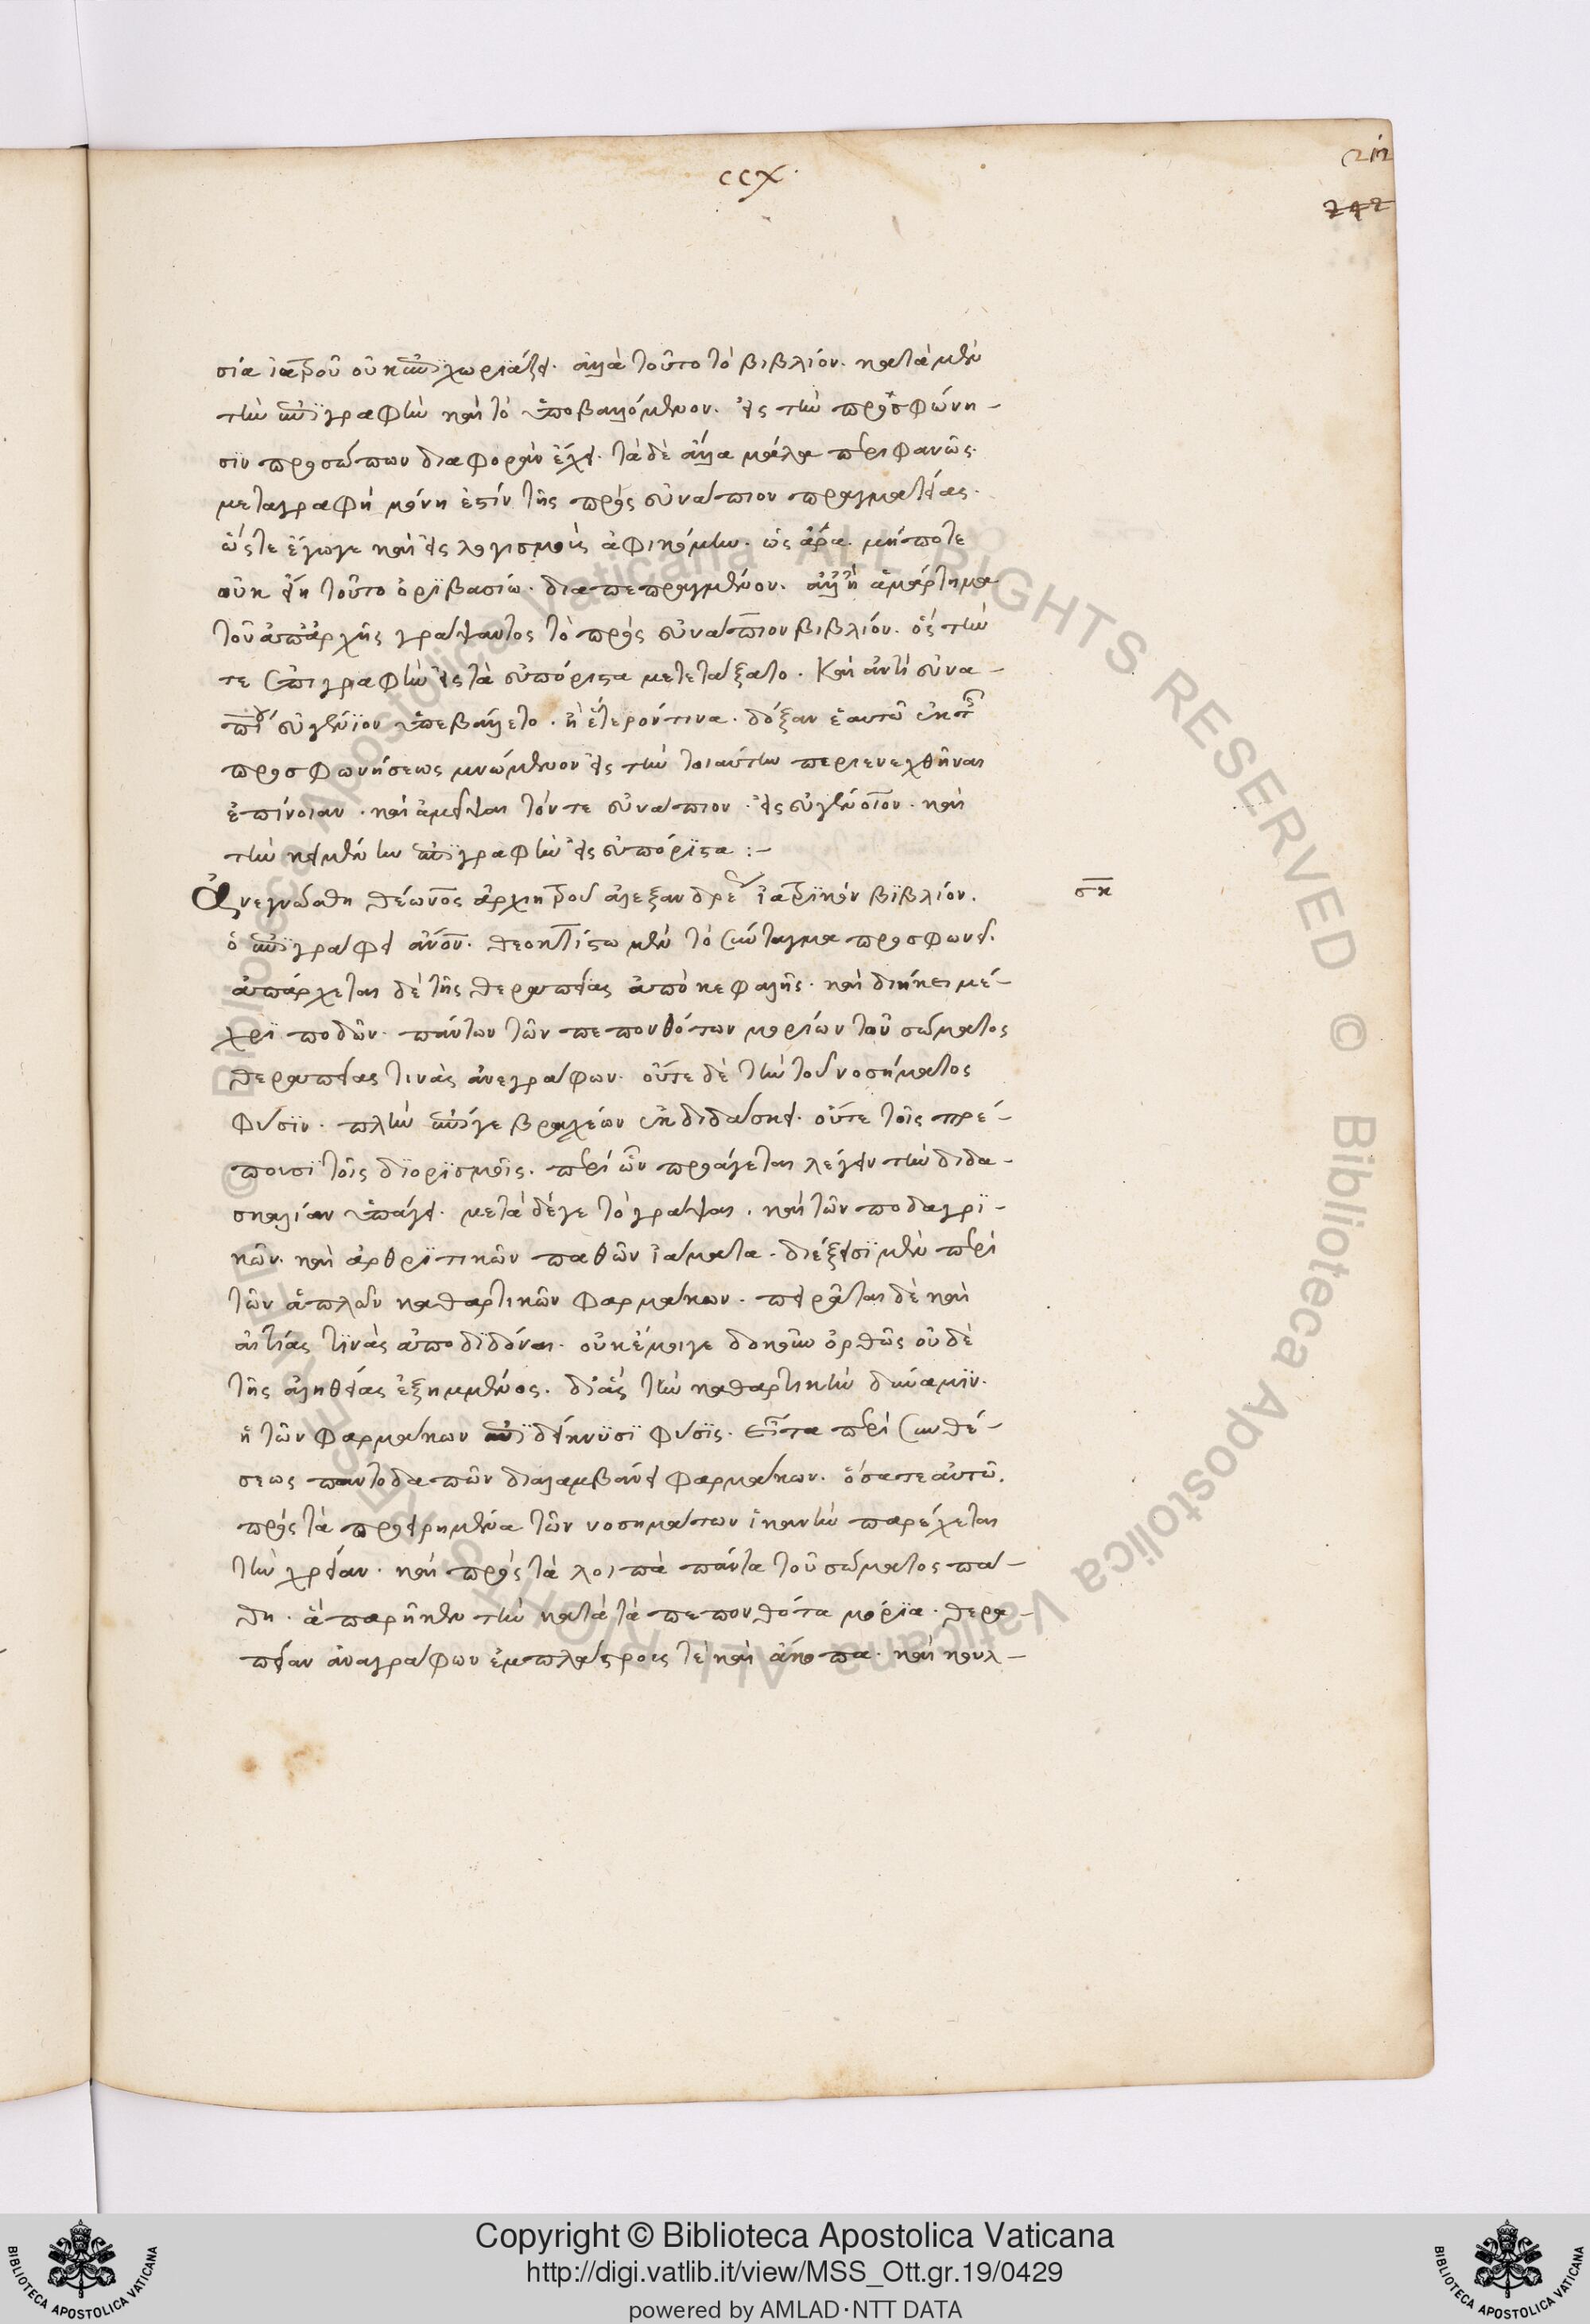 ccx
212
242
σία ἰατροῦ οὐκ ἐπιχωριάζει. ἀλλὰ τοῦτο τὸ βιβλίον. κατὰ μὲν
τὴν ἐπιγραφὴν καὶ τὸ ὑποβαλλόμενον. εἰς τὴν προσφώνη-
σϊν προσώπων διαφορὰν ἔχει. τὰ δὲ ἄλλα μάλα περιφανῶς.
μεταγραφὴ μόνη ἐστὶν τῆς πρὸς εὐνάπιον πραγματείας.
ὥστε ἔγωγε καὶ εἰς λογισμοὺς ἀφικόμην. ὡς ἄρα. μήποτε
οὐκ εἴη τοῦτο ὀρϊβασίω. διαπεπραγμένον. ἀλλ' ἢ ἁμάρτημα
τοῦ ἀπαρχῆς γράψαντος τὸ πρὸς εὐνάπιον βιβλίον. ὃς τὴν
τε ἐπιγραφὴν εἰς τὰ εὐπόριστα μετετάξατο. Καὶ ἀντὶ εὐνα-
πίου εὐγένϊον ὑπεβάλλετο. ἢ ἕτερόν τινα. δόξαν ἑαυτῶ ἐκ τῆς
προσφωνήσεως μνώμενον εἰς τὴν τοιαύτην περιενεχθῆναι
ἐπίνοιαν. καὶ ἀμεῖψαι τόν τε εὐνάπιον. εἰς εὐγένϊον. καὶ
τὴν κειμένην ἐπιγραφὴν εἰς εὐπόρϊστα :-
Ἀνεγνώσθη θέωνος ἀρχιητροῦ ἀλεξανδρέως ἰατρϊκὸν βϊβλίον. σκ
ὃ ἐπιγράφει ἄνον. θεοκτίστω μὲν τὸ σύνταγμα προσφωνεῖ.
ἀπάρχεται δὲ τῆς θεραπείας ἀπὸ κεφαλῆς. καὶ διήκει μέ-
χρϊ ποδῶν. πάντων τῶν πεπονθότων μορίων τοῦ σώματος
θεραπείας τινὰς ἀναγράφων. οὔτε δὲ τὴν τοῦ νοσήματος
φύσϊν. πλὴν ἐπί γε βραχέων ἐκδιδάσκει. οὔτε τοῖς πρέ-
πουσϊ τοῖς δϊορϊσμοῖς. περὶ ὧν προάγεται λέγειν τὴν διδα-
σκαλίαν ὑπάγει. μετὰ δέ γε τὸ γράψαι. καὶ τῶν ποδαγρϊ-
κῶν. καὶ ἀρθρϊτικῶν παθῶν ἰάματα. διέξεισϊ μὲν περὶ
τῶν ἁπλῶν καθαρτικῶν φαρμάκων. πειρᾶται δὲ καὶ
αἰτίας τϊνὰς ἀποδϊδόναι. οὐκ ἔμοιγε δοκῶν ὀρθῶς οὐδὲ
τῆς ἀληθείας ἐξημμένος. δι' ἃς τὴν καθαρτικὴν δύναμϊν.
ἡ τῶν φαρμάκων ἐπϊδείκνυσϊ φύσϊς. εἶτα περὶ συνθέ-
σεως παντοδαπῶν διαλαμβάνει φαρμάκων. ὅσα τε αὐτῶ.
πρὸς τὰ προειρημένα τῶν νοσημάτων ἱκανὴν παρέχεται
τὴν χρείαν. καὶ πρὸς τὰ λοιπὰ πάντα τοῦ σώματος πά-
θη. ἃ παρῆκεν τὴν κατὰ τὰ πεπονθότα μόρϊα. θερα-
πείαν ἀναγράφων ἐμπλάστρους τὲ καὶ ἄκοπα. καὶ κολ-
Copyright © Biblioteca Apostolica Vaticana
http://digi.vatlib.it/view/MSS_Ott.gr.19/0429
powered by AMLAD·NTT DATA